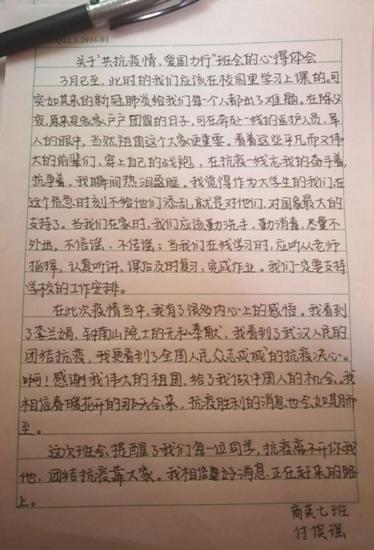 Q/12.3.2016.01
关于"共抗疫情,爱国力行"班会的心得体会
3月已至,此时的我们应该在校园里学习上课的。可
突如其来的新冠肺炎给我们每一个人都出了难题。在除夕
夜,原来是家家户户团圆的日子,可在奔赴一线的医护人员,军
人的眼中,当然祖国这个大家更重要。看着这些平凡而又伟
大的前辈们,穿上自己的战袍,在抗疫一线忘我的奋斗着,
抗争着,我瞬间热泪盈眶。我觉得作为大学生的我们,在
这个危急时刻不给他们添乱,就是对他们,对国家最大的
支持了。当我们在家时,我们应该勤洗手、勤消毒,尽量不
外出,不信谣、不传谣;当我们在线学习时,应听从老师
指挥,认真听讲,课后及时复习,完成作业。我们一定要支持
学校的工作安排。
在此次疫情当中,我有了很多内心上的感悟。我看到
了李兰娟、钟南山院士的无私奉献,我看到了武汉人民的
团结抗疫,我更看到了全国人民众志成城的抗疫决心。
啊!感谢我伟大的祖国,给了我做中国人的机会,我
相信春暖花开的那天会来,抗疫胜利的消息也会如期而
至。
这次班会,提醒了我们每一位同学,抗疫离不开你我
他,团结抗疫靠大家。我相信好消息,正在赶来的路
上。
商英七班
付俣谣